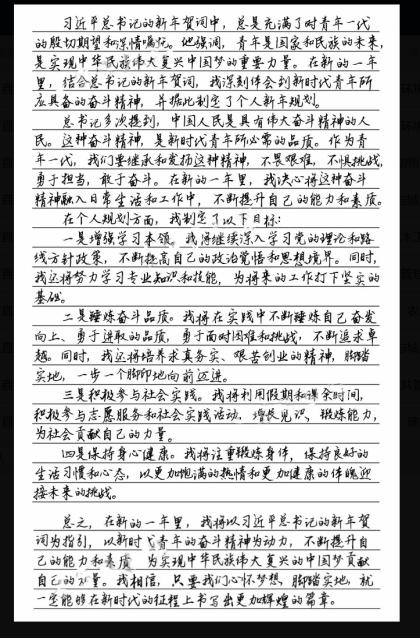 习近平总书记的新年贺词中，总是充满了对青年一代
的殷切期望和深情嘱托。他强调，青年是国家和民族的未来，
是实现中华民族伟大复兴中国梦的重要力量。在新的一年
里，结合总书记的新年贺词，我深刻体会到新时代青年所
应具备的奋斗精神，并据此制定了个人新年规划。
总书记多次提到，中国人民是具有伟大奋斗精神的人
民。这种奋斗精神，是新时代青年所必需的品质。作为青
年一代，我们要继承和发扬这种精神，不畏艰难，不惧挑战，
勇于担当，敢于奋斗。在新的一年里，我决心将这种奋斗
精神融入日常生活和工作中，不断提升自己的能力和素质。
在个人规划方面，我制定了以下目标：
一是增强学习本领。我将继续深入学习党的理论和路
线方针政策，不断提高自己的政治觉悟和思想境界。同时，
我还将努力学习专业知识和技能，为将来的工作打下坚实的
基础。
二是锤炼奋斗品质。我将在实践中不断锤炼自己奋发
向上、勇于进取的品质，勇于面对困难和挑战，不断追求卓
越。同时，我还将培养求真务实、艰苦创业的精神，脚踏
实地，一步一个脚印地向前迈进。
三是积极参与社会实践。我将利用假期和课余时间，
积极参与志愿服务和社会实践活动，增长见识、锻炼能力，
为社会贡献自己的力量。
四是保持身心健康。我将注重锻炼身体，保持良好的
生活习惯和心态，以更加饱满的热情和更加健康的体魄迎
接未来的挑战。
总之，在新的一年里，我将以习近平总书记的新年贺
词为指引，以新时代青年的奋斗精神为动力，不断提升自
己的能力和素质，为实现中华民族伟大复兴的中国梦贡献
自己的力量。我相信，只要我们心怀梦想，脚踏实地，就
一定能够在新时代的征程上书写出更加辉煌的篇章。